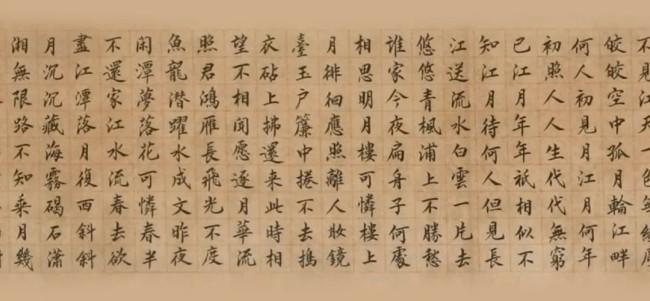 江天一色無
皎皎空中孤月輪江畔
何人初見月江月何年
初照人人生代代無窮
已江月年年祇相似不
知江月待何人但見長
江送流水白雲一片去
悠悠青楓浦上不勝愁
誰家今夜扁舟子何處
相思明月樓可憐樓上
月徘徊應照離人妝鏡
臺玉户簾中捲不去搗
衣砧上拂還來此時相
望不相聞愿逐月華流
照君鴻雁長飛光不度
魚龍潛躍水成文昨夜
闲潭夢落花可憐春半
不還家江水流春去欲
盡江潭落月復西斜斜
月沉沉藏海霧碣石瀟
湘無限路不知乘月幾